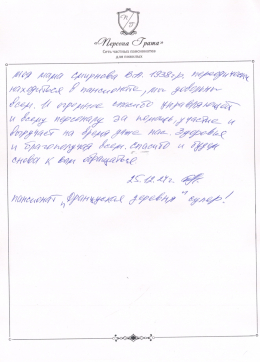 «Персона Грата»
Сеть частных пансионатов
для пожилых
Моя мама Смирнова В.А. 1938 г.р. периодически
находиться в пансионате, мы довольны
всем. И огромное спасибо управляющей
и всему персоналу за помощь, участие и
выручает на время дома нас. Здоровья
и благополучия всем. Спасибо и будем
снова к вам обращаться
25.12.17г.
пансионат "Французская деревня" супер!